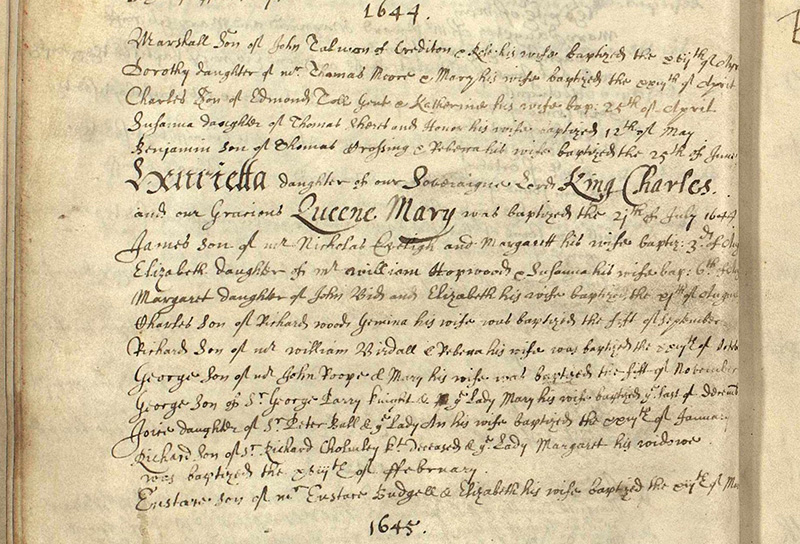 1644.
Marshall Son of John Talmon of Crediton & his wife baptized the xijth of Apr
Dorothy daughter of mr Thomas Moore & Mary his wife baptized the xxijth of April
Charles Son of Edmond Toll Gent & Katherine his wife bap: 25th of April
Susanna daughter of Thomas and Honor his wife baptized 12th of May
Benjamin Son of Thomas Crossing & Rebeca his wife baptized the 25th of June
Henrietta daughter of our Soveraigne Lord King Charles.
and our Gracious Queene Mary was baptized the 21th of July 1644
James Son of mr Nicholas Eveligh and Margarett his wife baptiz: 3d of Aug
Elizabeth daughter of mr William Hopwood & Susanna his wife bap: 6th of
Margaret daughter of John and Elizabeth his wife baptized the xjth of Augu
Charles Son of Richard wood Gemina his wife was baptized the fift of September
Richard Son of mr William Birdall & Rebeca his wife was baptized the of Octob
George Son of mr John Roope & Mary his wife was baptized the fift of November
George Son of Sr George Parry knight & ye Lady Mary his wife baptized ye last of Decemb
Joice daughter of Sr Peter Ball & ye Lady An his wife baptized the of January
Richard Son of Sr Richard Cholmley kt deceased & ye Lady Margaret his widowe
was baptized the of ffebruary.
Eustace Son of mr Eustace Budgell & Elizabeth his wife baptized the of Ma
1645.